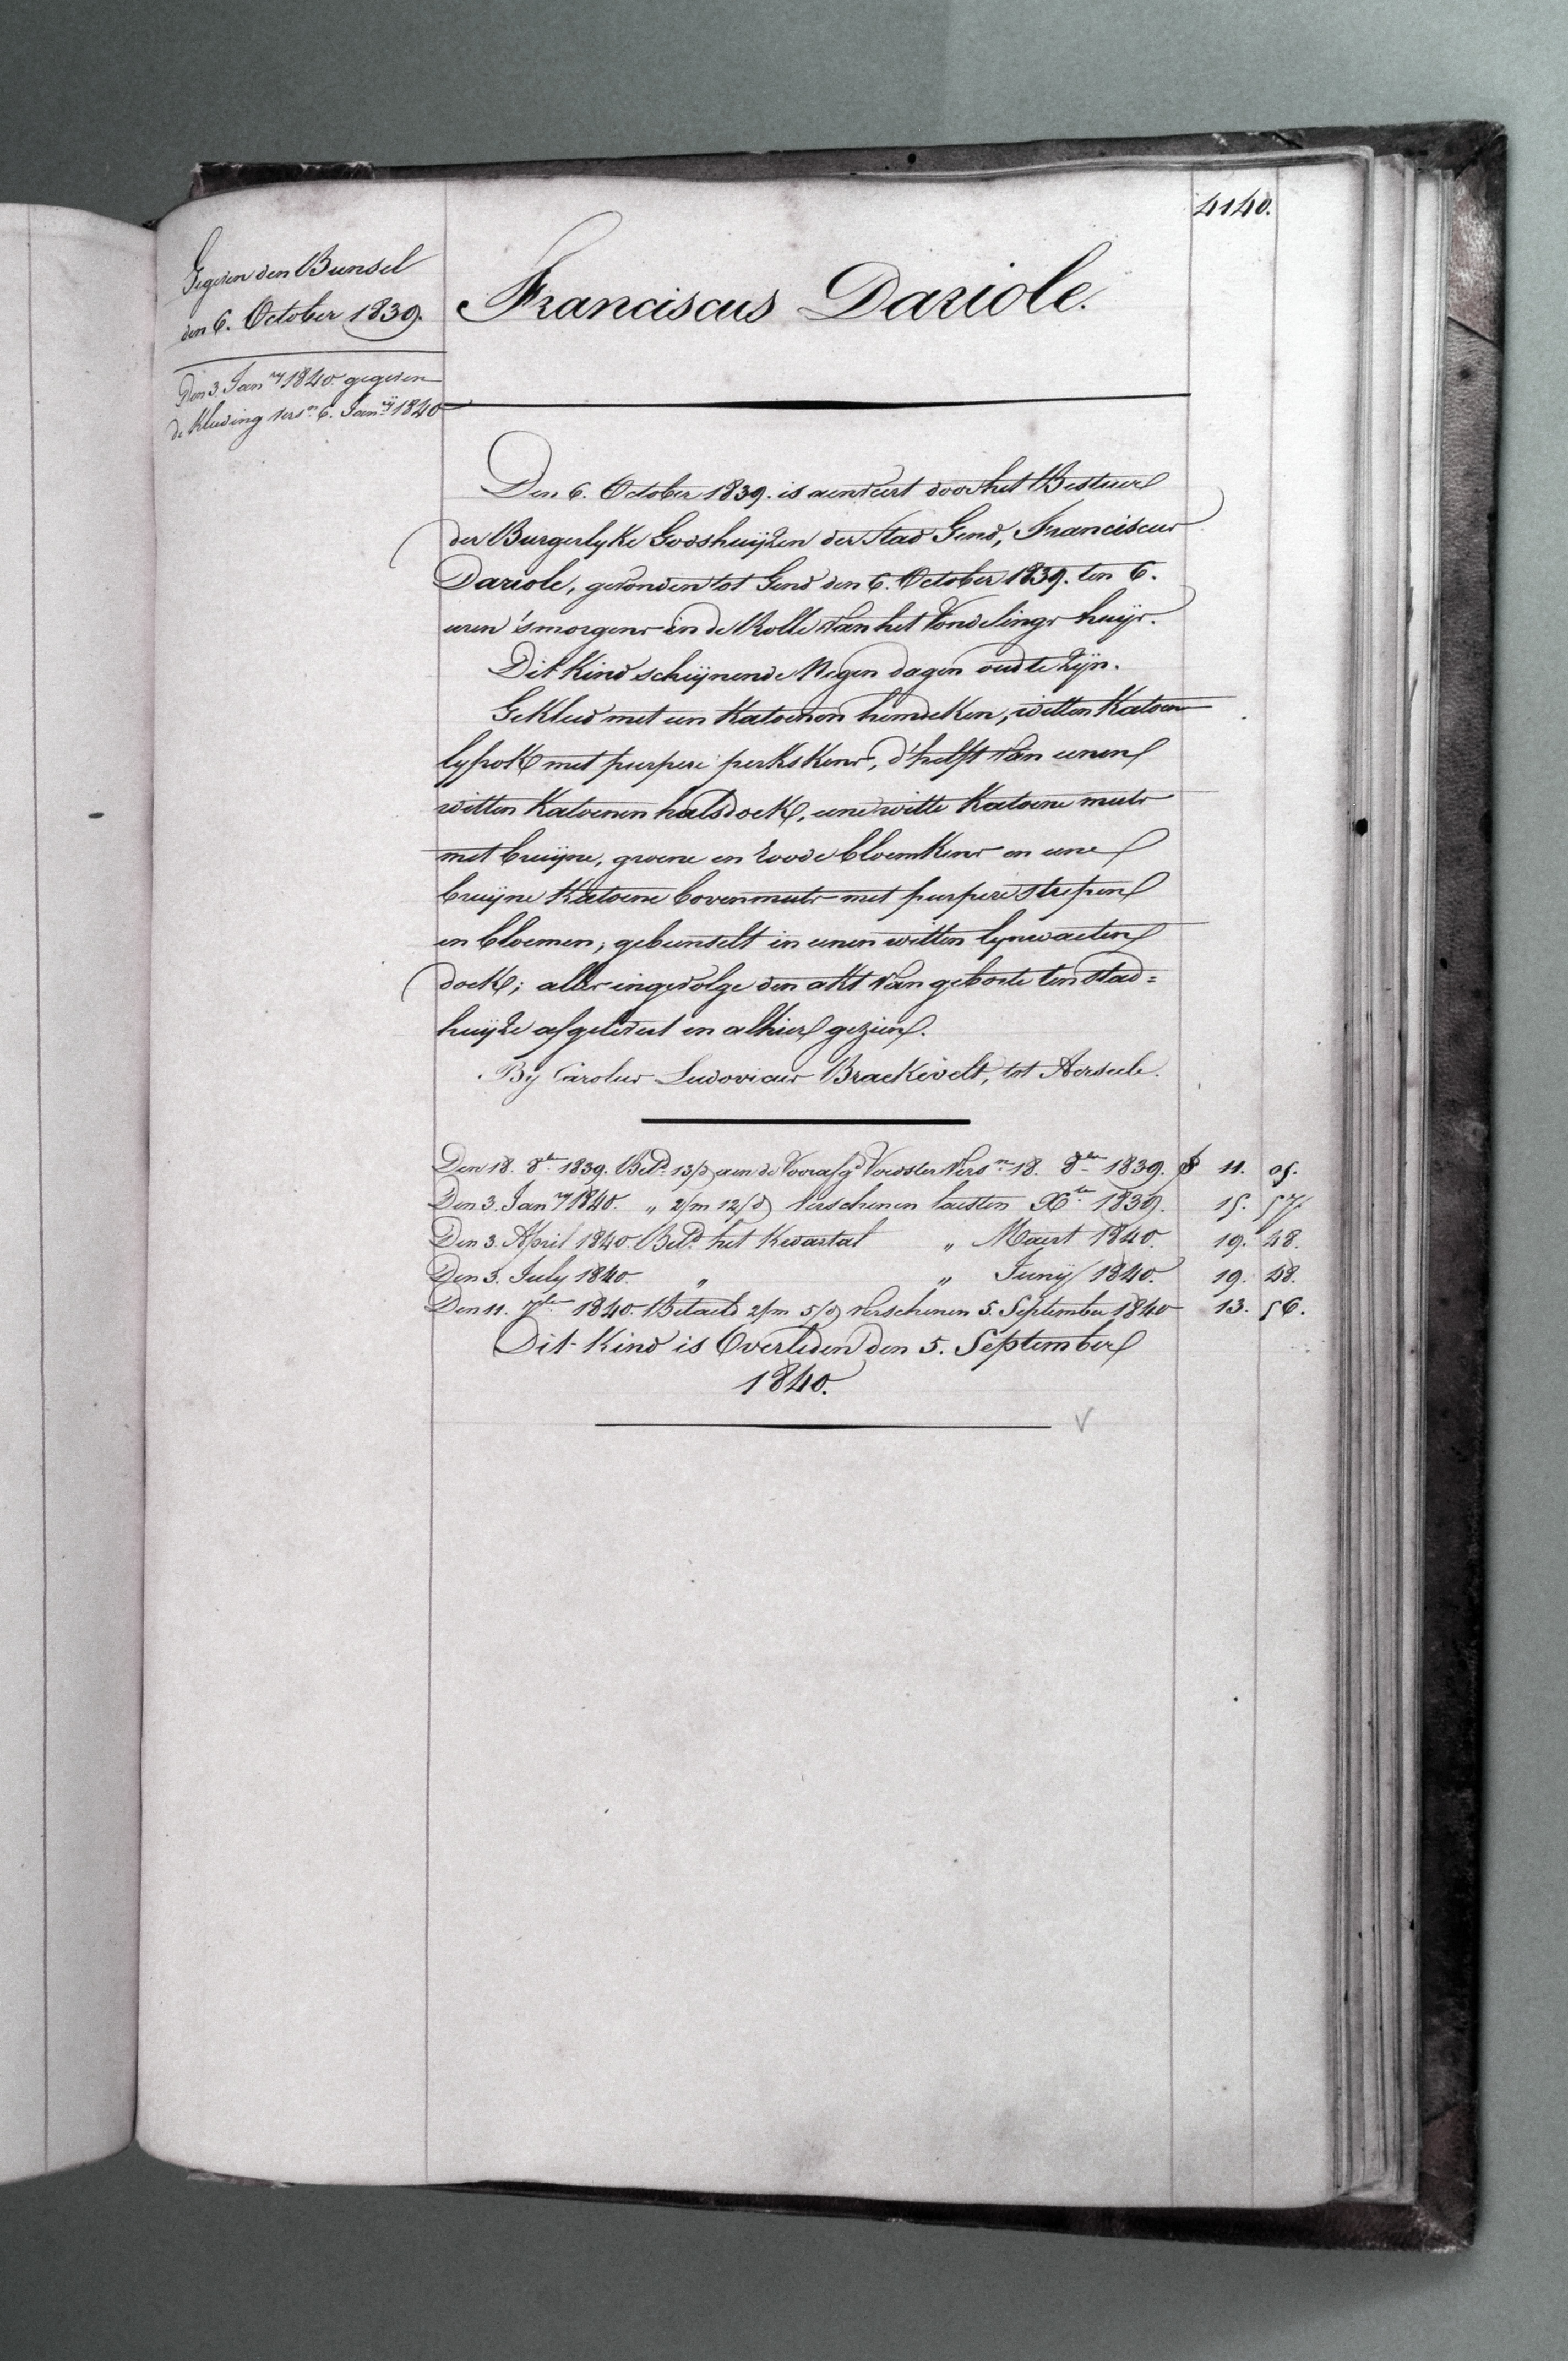 4140.
Gegeven den Bunsel
den 6. October 1839.
Den 3 Janry 1840 gegeven
de kleeding versn 6. Janrij 1840
Franciscus Dariole.
Den 6. October 1839. is aenveert door het Bestuer
der Burgerlyke Godshuijzen der Stad Gend, Franciscus
Dariole, gevonden tot Gend den 6. October 1839. ten 6.
uren 'smorgens in de Rolle van het Vondelings huijs.
Dit Kind schijnende Negen dagen oud te zijn.
Gekleed met een Katoenen hemdeken, witten Katoen
lyfrok met purpere perkskens, d'helft van eenen
witten Katoenen halsdoek, eene witte Katoene muts
met bruijne, groene en roode bloemkens en eene
bruijne Katoene bovenmuts met purpere strepen
en bloemen; gebunselt in eenen witten lynwaeten
doek; alles ingevolge den akt van geboorte ten stad=
huijze afgelevert en alhier gezien.
By Carolus Ludovicus Braekevelt, tot Aerseele.
Den 18. 8bre 1839. Betd 13/d aen de Voorafgd Voedster Versn 18. 8bre 1839. f 11. 05.
Den 3. Janry 1840. " 2/m 12/d Verschenen laesten Xbre 1839. 15. 57.
Den 3. April 1840. Betd het Kwartal " Maert 1840. 19. 48.
Den 3. July 1840. " " Junij 1840. 19. 48.
Den 11. 7bre 1840. Betaeld 2/m 5/d Verschenen 5. September 1840 13. 56.
Dit Kind is Overleden den 5. September
1840.